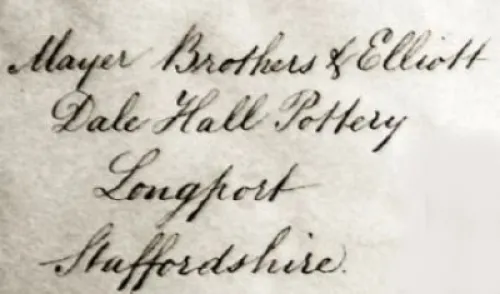 Mayer Brothers & Elliott
Dale Hall Pottery
Longport
Staffordshire.